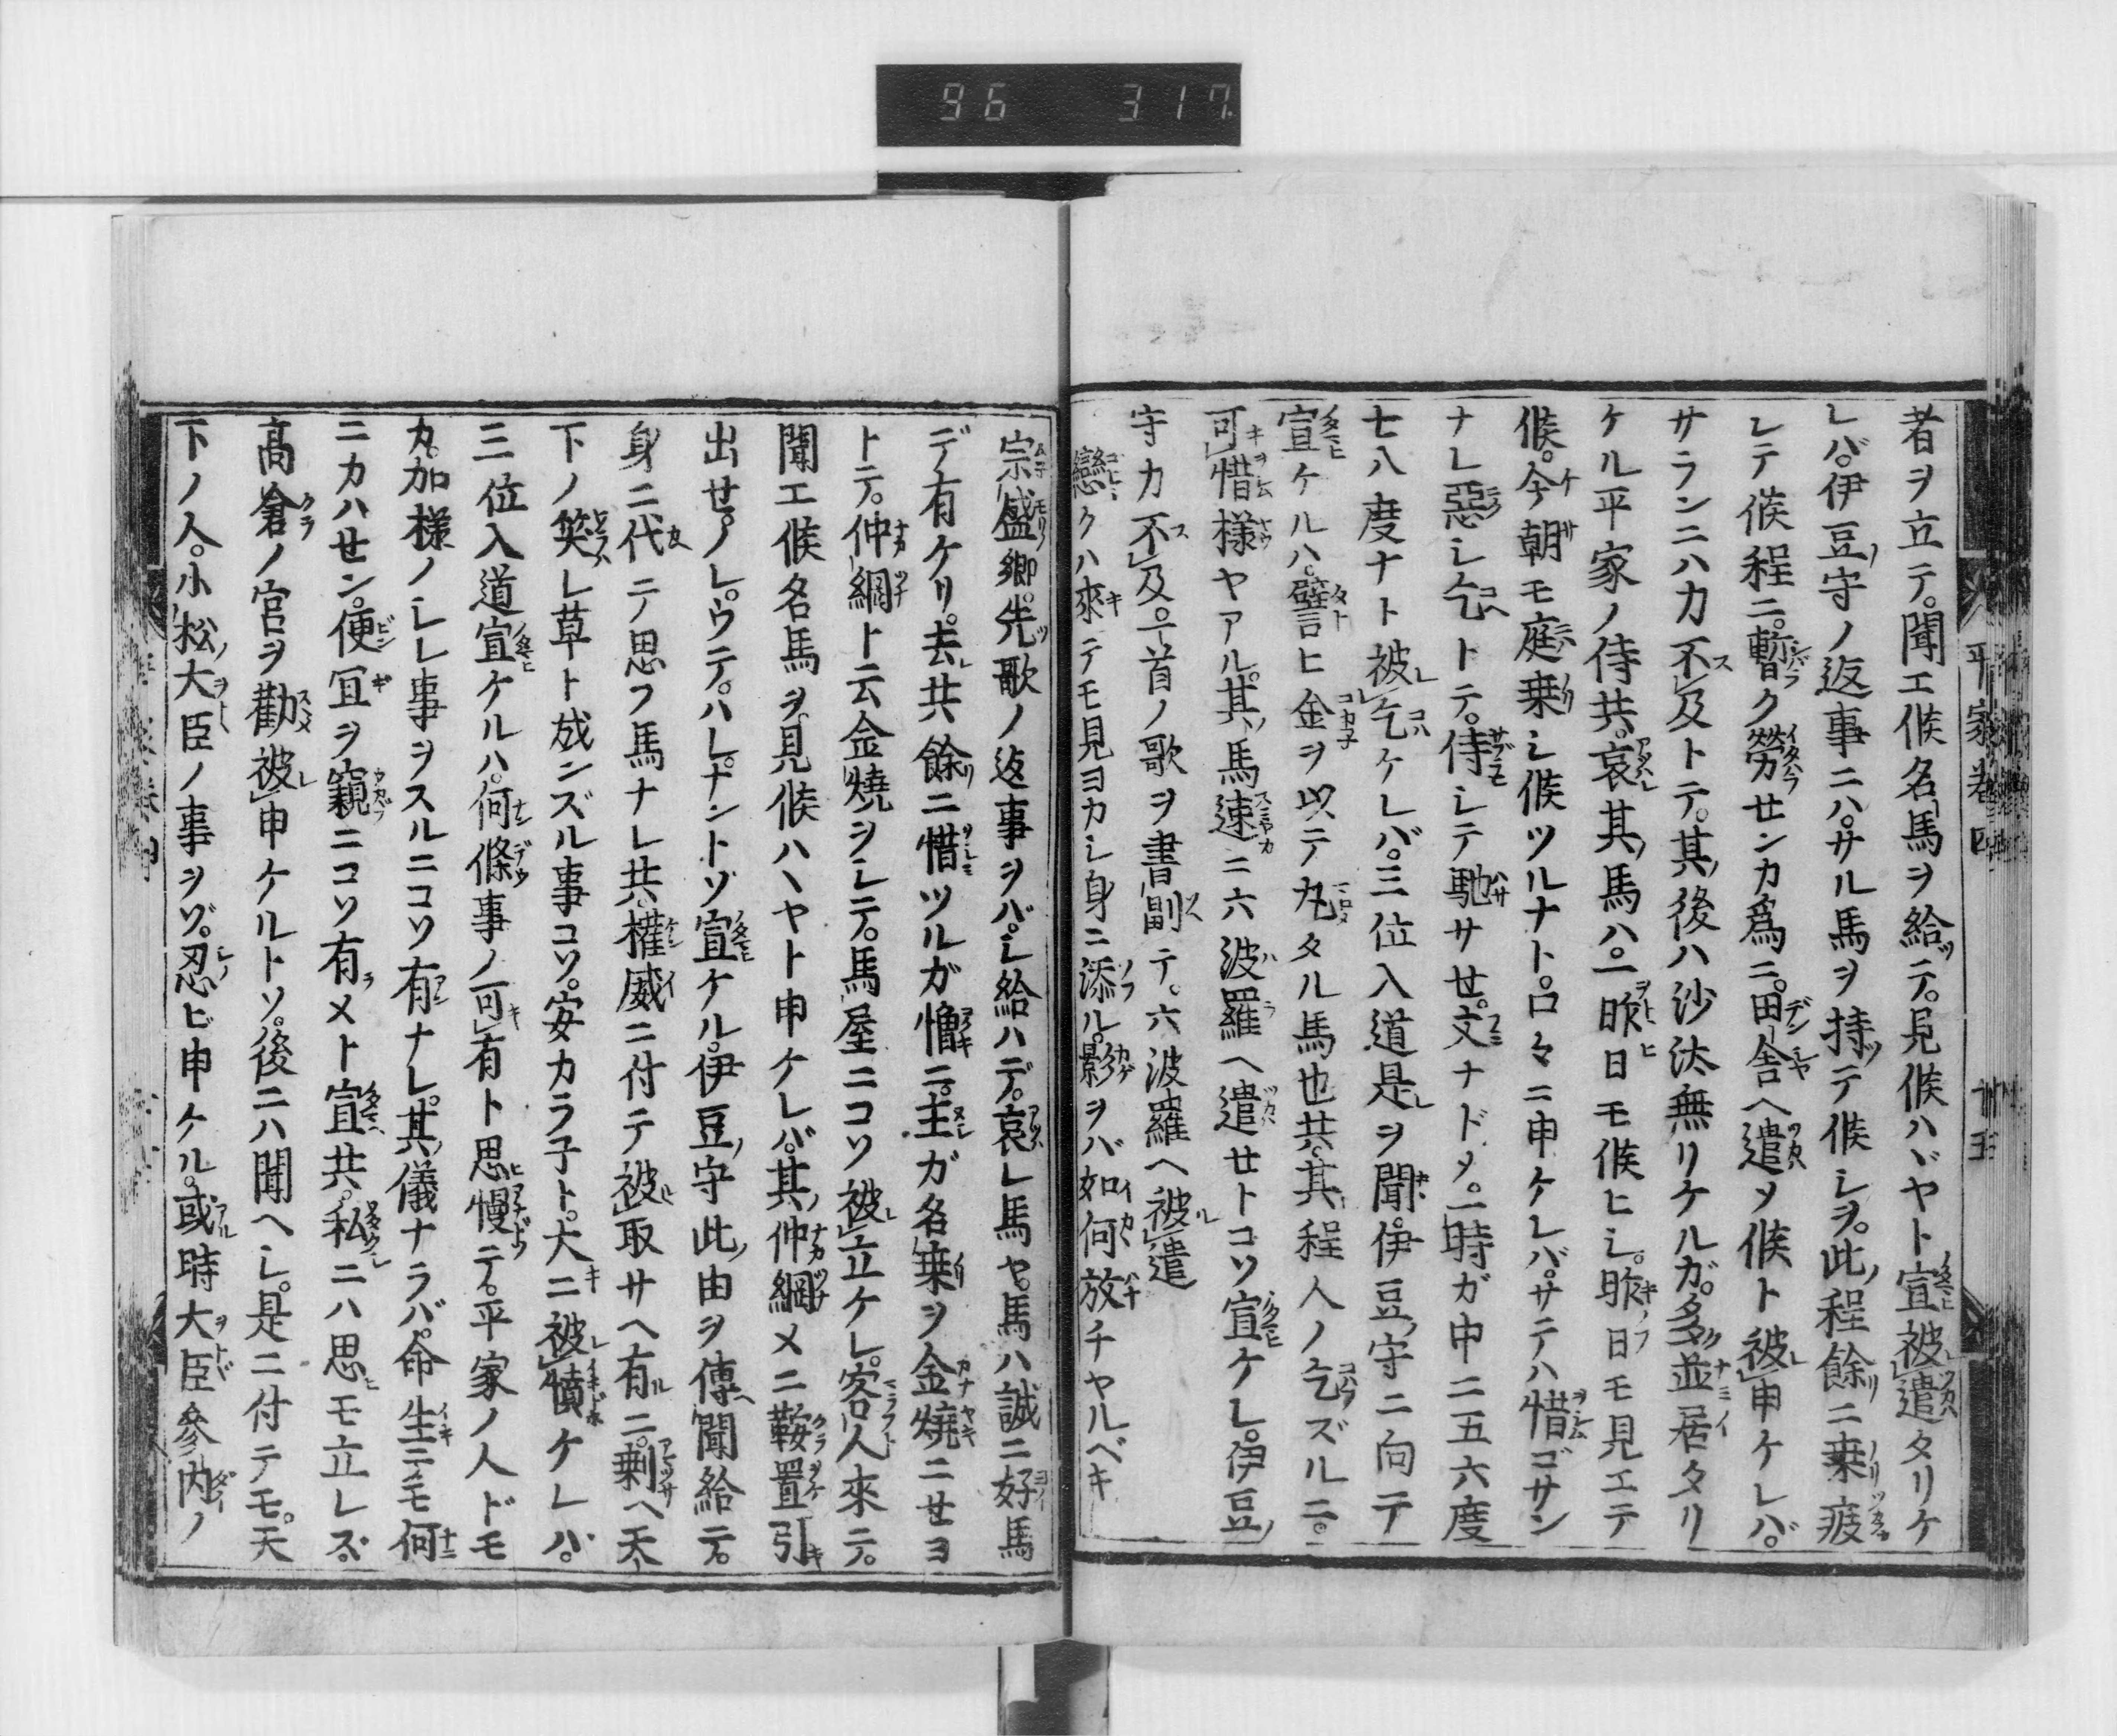 96 317
者ヲ立テ。聞エ候名馬ヲ給テ。見候ハヾヤト宣被遣タリケ
レバ。伊豆守ノ返事ニハ。サル馬ヲ持テ候シヲ。此程餘ニ乗疲
シテ候程ニ。暫ク労センカ爲ニ。田舎ヘ遣ソ候ト被申ケレバ。
サランニハカ不及トテ。其後ハ沙汰無リケルガ。多並居タリ
ケル平家ノ侍共。哀其馬ハ。一昨日モ候ヒシ。昨日モ見エテ
候。今朝モ庭乗シ候ツルナト。口々ニ申ケレバ。サテハ惜ゴサン
ナレ惡シ乞トテ。侍シテ馳サせ。文ナドメ。一時ガ中ニ五六度
七八度ナト被乞ケレバ。三位入道是ヲ聞。伊豆守ニ向テ
宣ケルハ。譬ヒ金ヲ以テ丸タル馬也共。其程人ノ乞ズルニ。
可惜様ヤアル。其馬速ニ六波羅ヘ遣せトコソ宣ケレ。伊豆
守カ不及。一首ノ歌ヲ書副テ。六波羅ヘ被遣
戀クハ來テモ見ヨカシ身ニ添ル。影ヲバ如何放チヤルベキ
平家巻四
廿五
宗盛卿。先歌ノ返事ヲバ。シ給ハデ。哀レ馬ヤ。馬ハ誠ニ好馬
デ有ケリ。去共餘ニ惜ツルガ憎ニ。主ガ名乗ヲ金焼ニせヨ
トテ。仲綱ト云金焼ヲシテ。馬屋ニコソ被立ケレ。客人來テ。
聞エ候名馬ヲ見候ハヽヤト申ケレバ。其仲綱メニ鞍置引
出せ。ノレ。ウテ。ハレ。ナントゾ宣ケル。伊豆守此由ヲ傳聞給テ。
身ニ代テ思フ馬ナレ共。權威ニ付テ被取サヘ有ニ。剰ヘ天
下ノ笑レ草ト成ンズル事コソ。安カラ子ト。大ニ被憤ケレバ。
三位入道宣ケルハ。何條事ノ可有ト思慢テ。平家ノ人ドモ
カ。加様ノシレ事ヲスルニコソ有ナレ。其儀ナラバ。命生テモ何
ニカハせン。便冝ヲ窺ニコソ有メト宣共。私ニハ思モ立レズ。
高倉ノ宮ヲ勸被申ケルトソ。後ニハ聞ヘシ。是ニ付テモ。天
下ノ人。小松大臣ノ事ヲゾ。忍ビ申ケル。或時大臣參内ノ